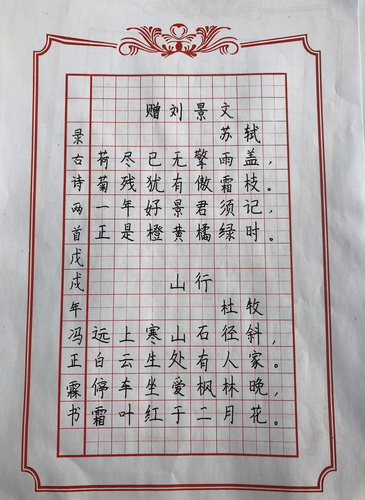 赠刘景文
苏轼
荷尽已无擎雨盖，
菊残犹有傲霜枝。
一年好景君须记，
正是橙黄橘绿时。
山行
杜牧
远上寒山石径斜，
白云生处有人家。
停车坐爱枫林晚，
霜叶红于二月花。
录古诗两首戊戌年冯正霖书